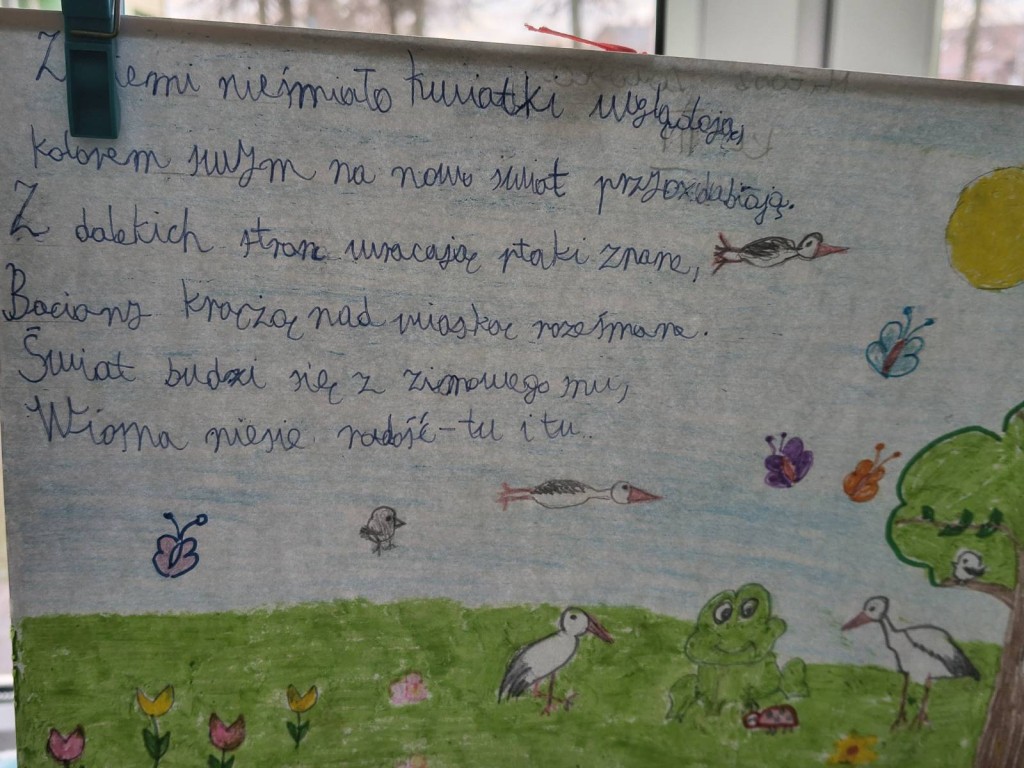 Z ziemi nieśmiało kwiatki wyglądają,
kolorem swym na nowo świat przyozdabiają.
Z dalekich stron wracają ptaki znane,
Bociany krążą nad wioską roześmiane.
Świat budzi się z zimowego snu,
Wiosna niesie radość - tu i tu..